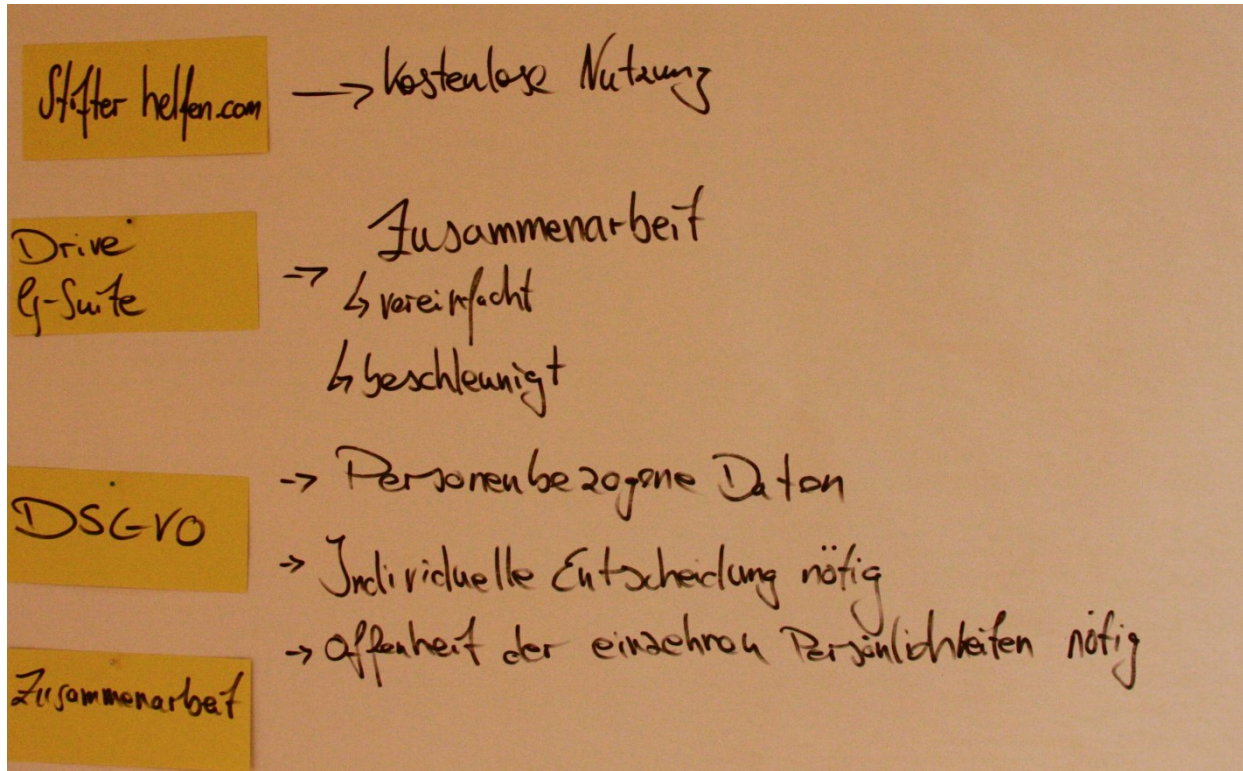 Stifter helfen.com → kostenlose Nutzung
Drive
G-Suite
→ Zusammenarbeit
↳ vereinfacht
↳ beschleunigt
DSGVO
→ Personenbezogene Daten
→ Individuelle Entscheidung nötig
→ Offenheit der einzelnen Persönlichkeiten nötig
Zusammenarbeit